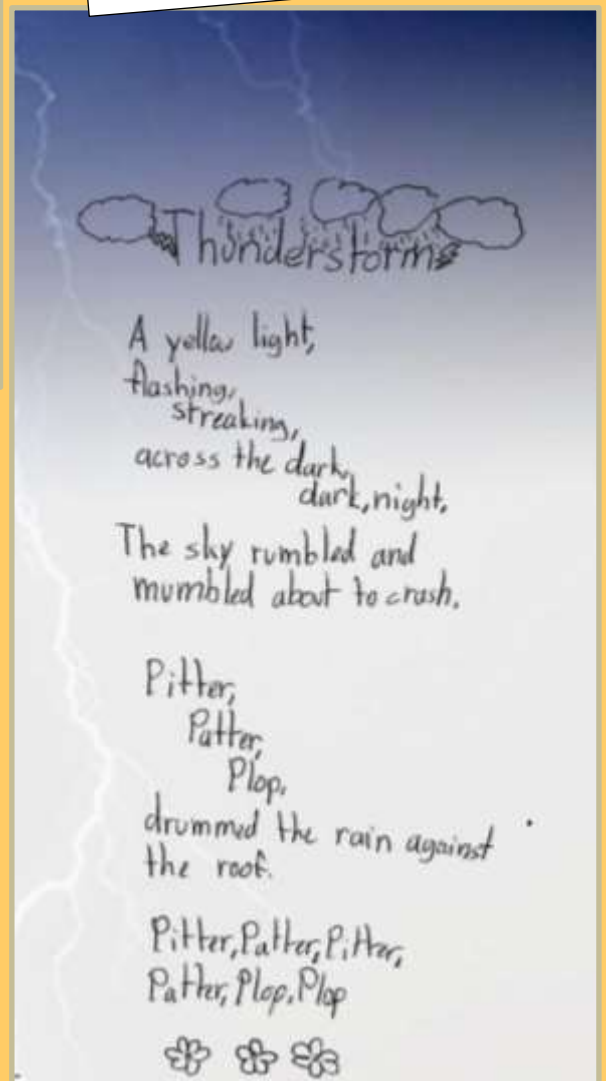 Thunderstorms
A yellow light,
flashing,
streaking,
across the dark,
dark, night.
The sky rumbled and
mumbled about to crash.
Pitter,
Patter,
Plop,
drummed the rain against
the roof.
Pitter, Patter, Pitter,
Patter, Plop, Plop